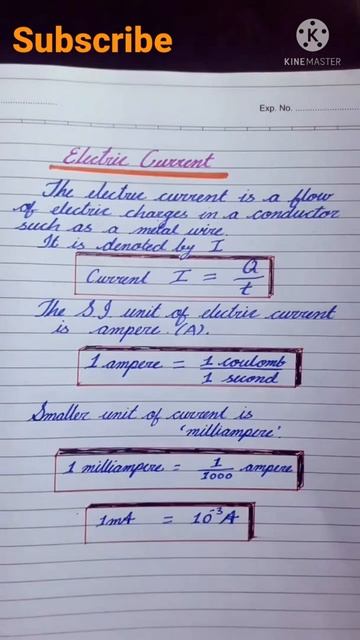 Subscribe
KINEMASTER
Exp. No.
Electric Current
The electric current is a flow
of electric charges in a conductor
such as a metal wire.
It is denoted by I
Current I = Q/t
The S.I unit of electric current
is ampere. (A).
1 ampere = 1 coulomb / 1 second
Smaller unit of current is
'milliampere'.
1 milliampere = 1/1000 ampere
1mA = 10⁻³A